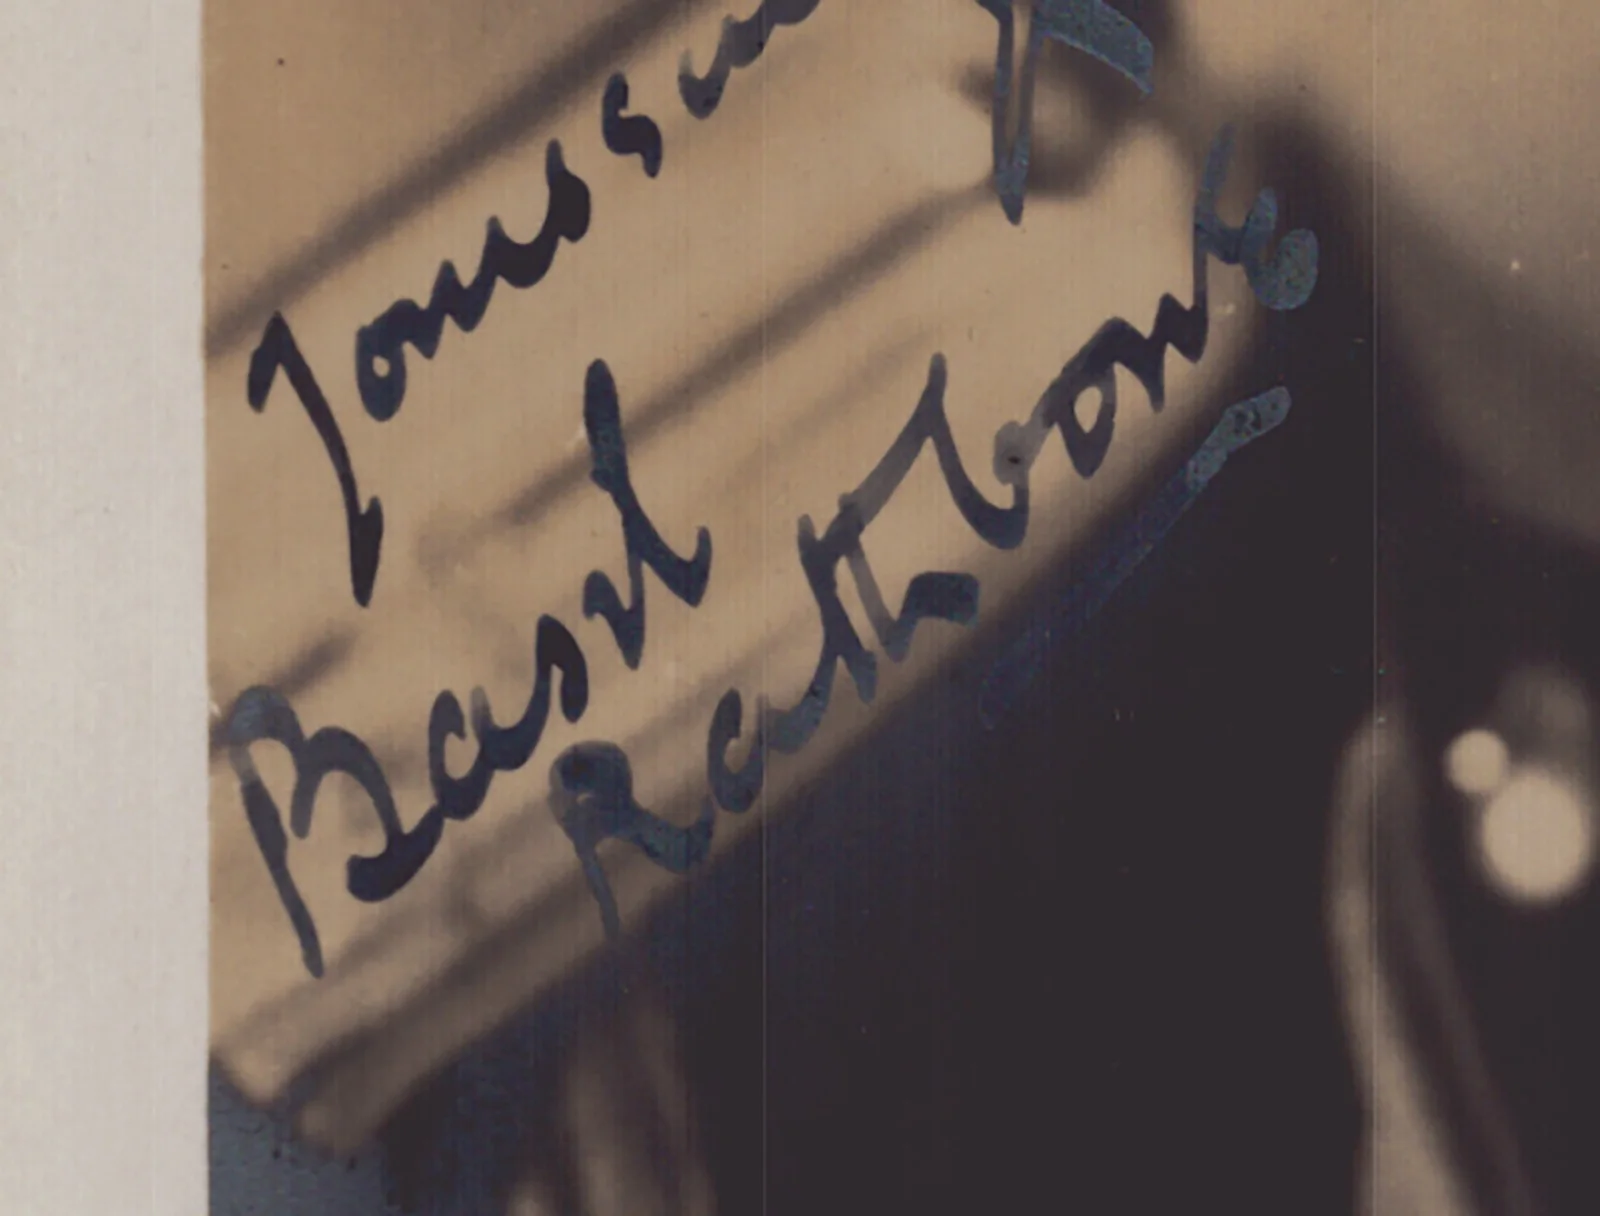 Yours
Basil
Rathbone